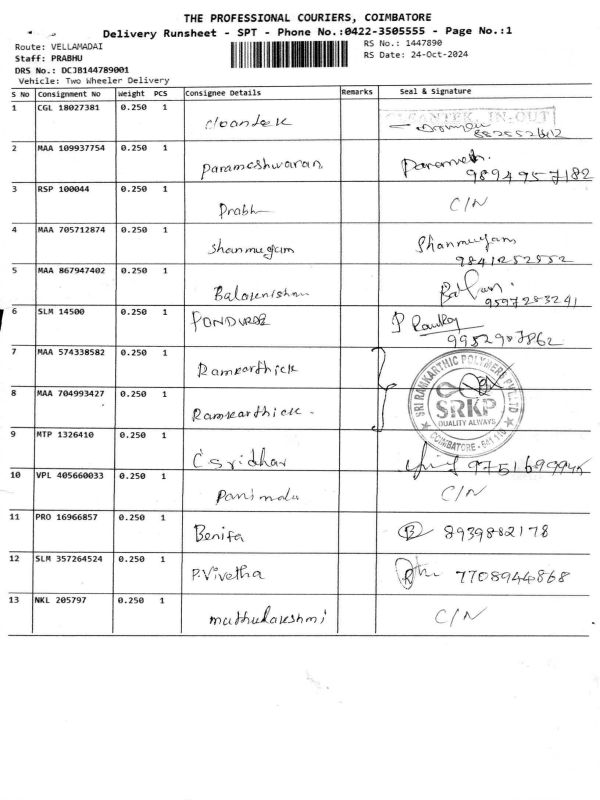 THE PROFESSIONAL COURIERS, COIMBATORE
Delivery Runsheet - SPT - Phone No.:0422-3505555 - Page No.:1
Route: VELLAMADAI RS No.: 1447890
Staff: PRABHU RS Date: 24-Oct-2024
DRS No.: DCJB144789001
Vehicle: Two Wheeler Delivery
S No Consignment No Weight PCS Consignee Details Remarks Seal & Signature
1 CGL 18027381 0.250 1 CLEANTEK IN-OUT
2 MAA 109937754 0.250 1 Parameshwaran 9894957182
3 RSP 100044 0.250 1 Prabh C/N
4 MAA 705712874 0.250 1 Shanmugam Shanmugam 9841252552
5 MAA 867947402 0.250 1 9597283241
6 SLM 14500 0.250 1 9952907862
7 MAA 574338582 0.250 1 Ramkarthick
8 MAA 704993427 0.250 1 Ramkarthick.
SRI RAMKARTHIC POLYMERS PVT.LTD
SRKP
QUALITY ALWAYS
COIMBATORE - 641 110
9 MTP 1326410 0.250 1 C Sridhar
10 VPL 405660033 0.250 1 Panimala C/N
11 PRO 16966857 0.250 1 Benifa B 8939882178
12 SLM 357264524 0.250 1 P.Vivetha 7708944868
13 NKL 205797 0.250 1 muthulakshmi C/N